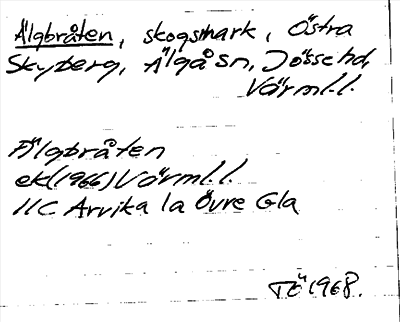 Älgbråten, skogsmark, Östra
Skyberg, Älgå sn, Jösse hd,
Värml.l.
Älgbråten
ek (1966) Värml.l.
11C Arvika 1a Övre Gla
TÖ 1968.